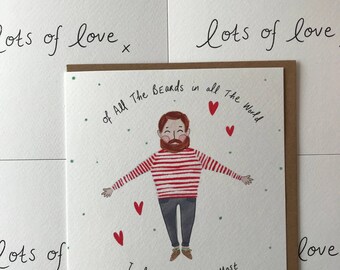 lots of love x
lots of love x
of All The Beards in all The World
lots of love
lots of